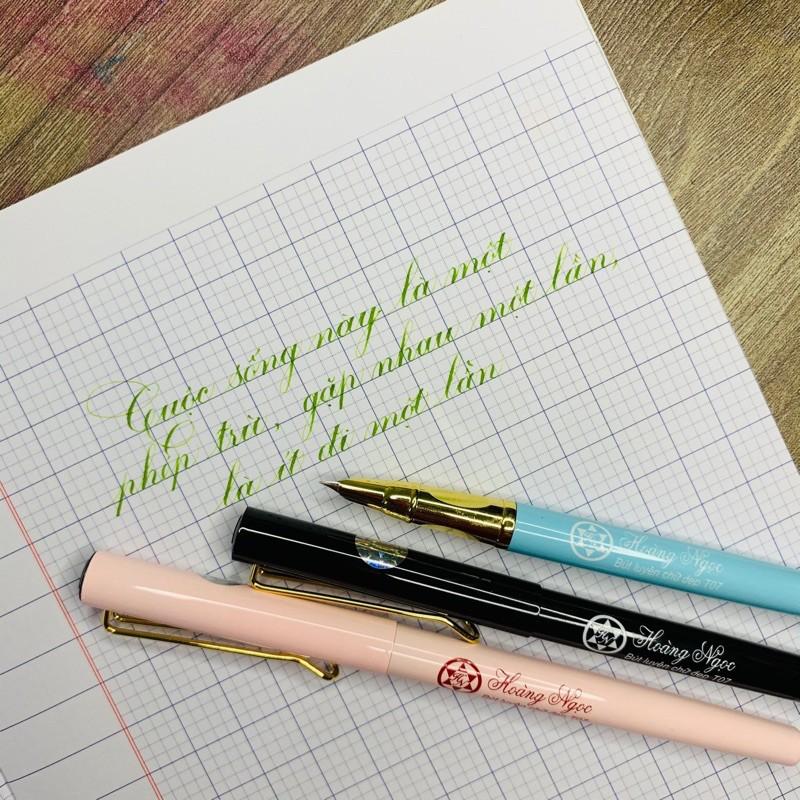 Cuộc sống này là một
phép trừ, gặp nhau một lần,
là ít đi một lần
Hoàng Ngọc
Bút luyện chữ đẹp T07
HN
Hoàng Ngọc
Bút luyện chữ đẹp T07
HN
Hoàng Ngọc